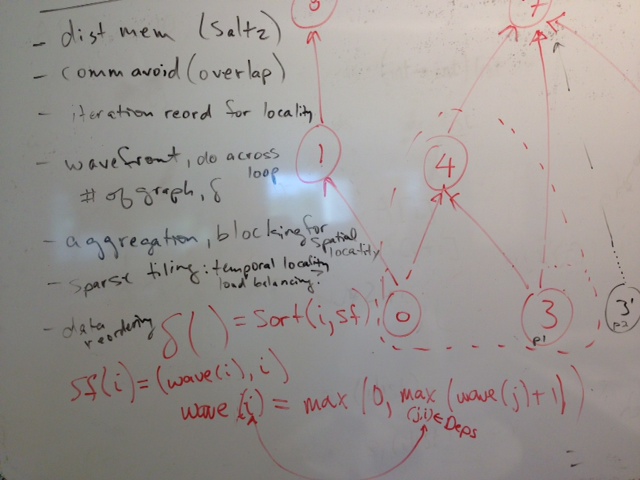 - dist mem (Saltz)
- comm avoid (overlap)
- iteration reord for locality
- wavefront, do across loop
# of graph, δ
- aggregation, blocking for spatial locality
- sparse tiling: temporal locality
load balancing?
- data reordering
δ( ) = sort(i, sf)
sf(i) = (wave(i), i)
wave(i) = max(0, max (wave(j)+1))
(j,i) ∈ Deps
7
1
4
0
3
p1
3'
p2